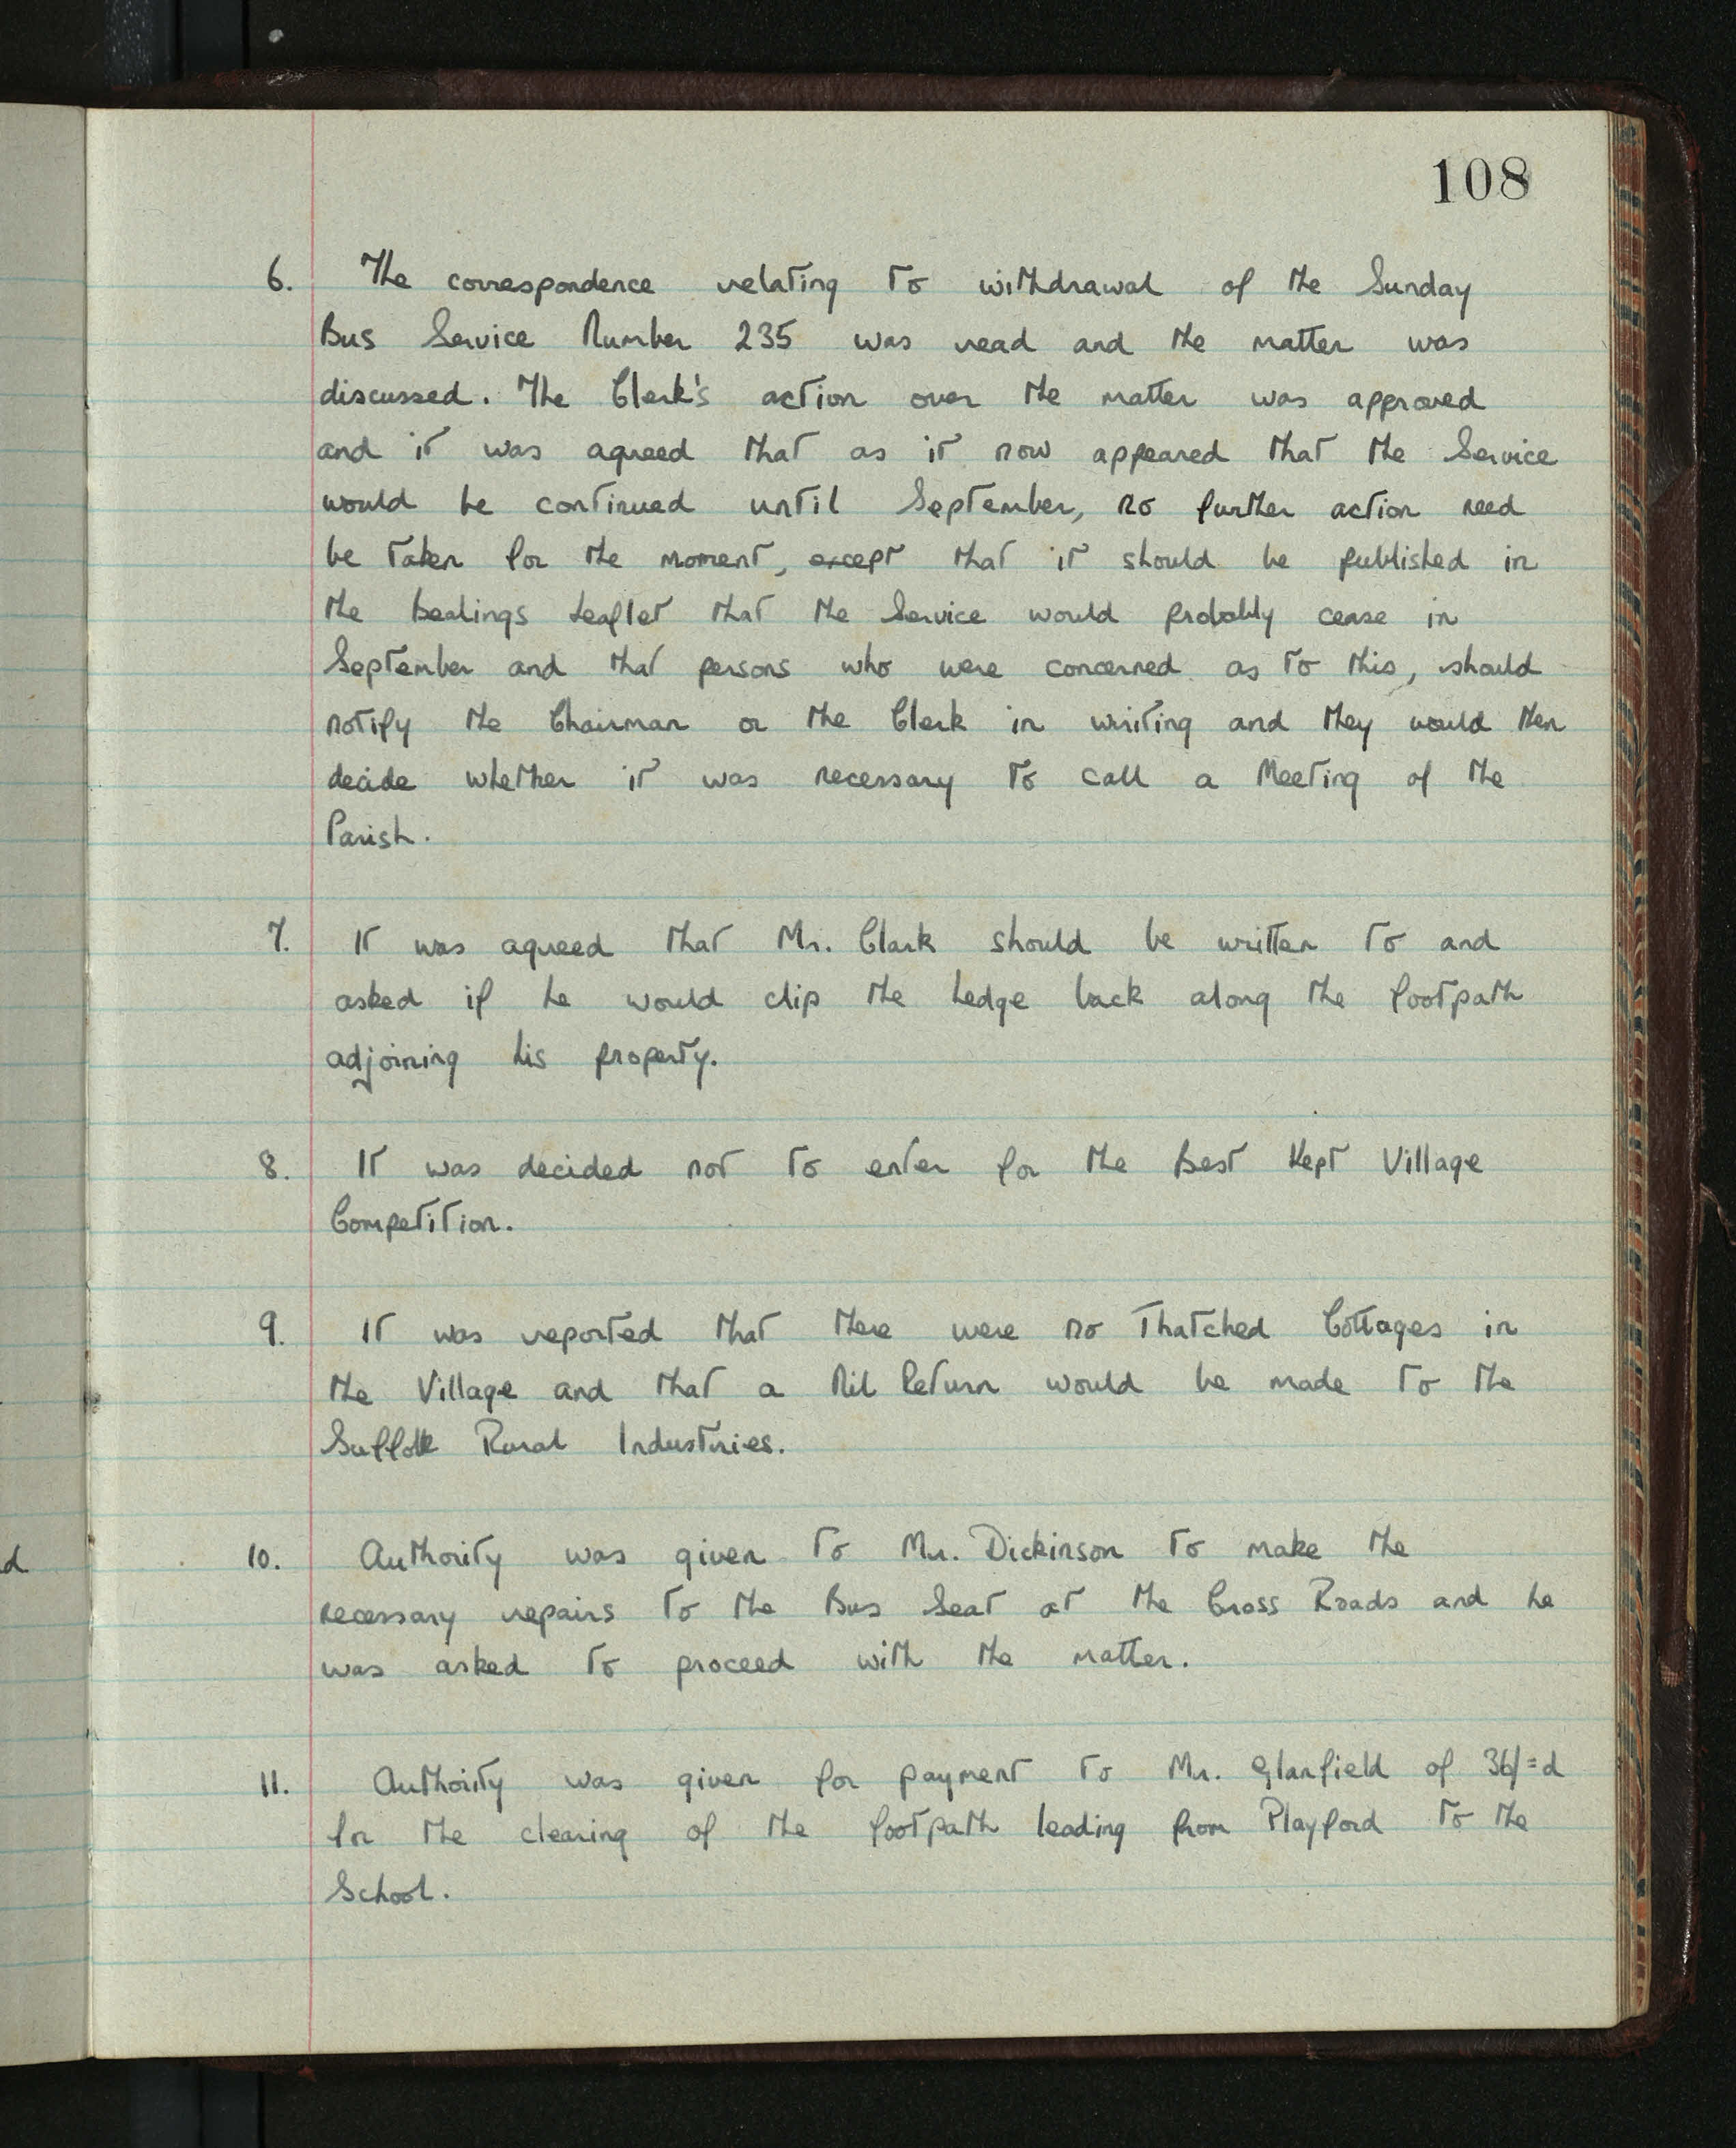 108
6. The correspondence relating to withdrawal of the Sunday
Bus Service Number 235 was read and the matter was
discussed. The Clerk's action over the matter was approved
and it was agreed that as it now appeared that the Service
would be continued until September, no further action need
be taken for the moment, except that it should be published in
the Bealings Leaflet that the Service would probably cease in
September and that persons who were concerned as to this, should
notify the Chairman or the Clerk in writing and they would then
decide whether it was necessary to call a Meeting of the
Parish.
7. It was agreed that Mr. Clark should be written to and
asked if he would clip the hedge back along the footpath
adjoining his property.
8. It was decided not to enter for the Best Kept Village
Competition.
9. It was reported that there were no Thatched Cottages in
the Village and that a Nil Return would be made to the
Suffolk Rural Industries.
d
10. Authority was given to Mr. Dickinson to make the
necessary repairs to the Bus Seat at the Cross Roads and he
was asked to proceed with the matter.
11. Authority was given for payment to Mr. Glanfield of 36/=d
for the clearing of the footpath leading from Playford to the
School.